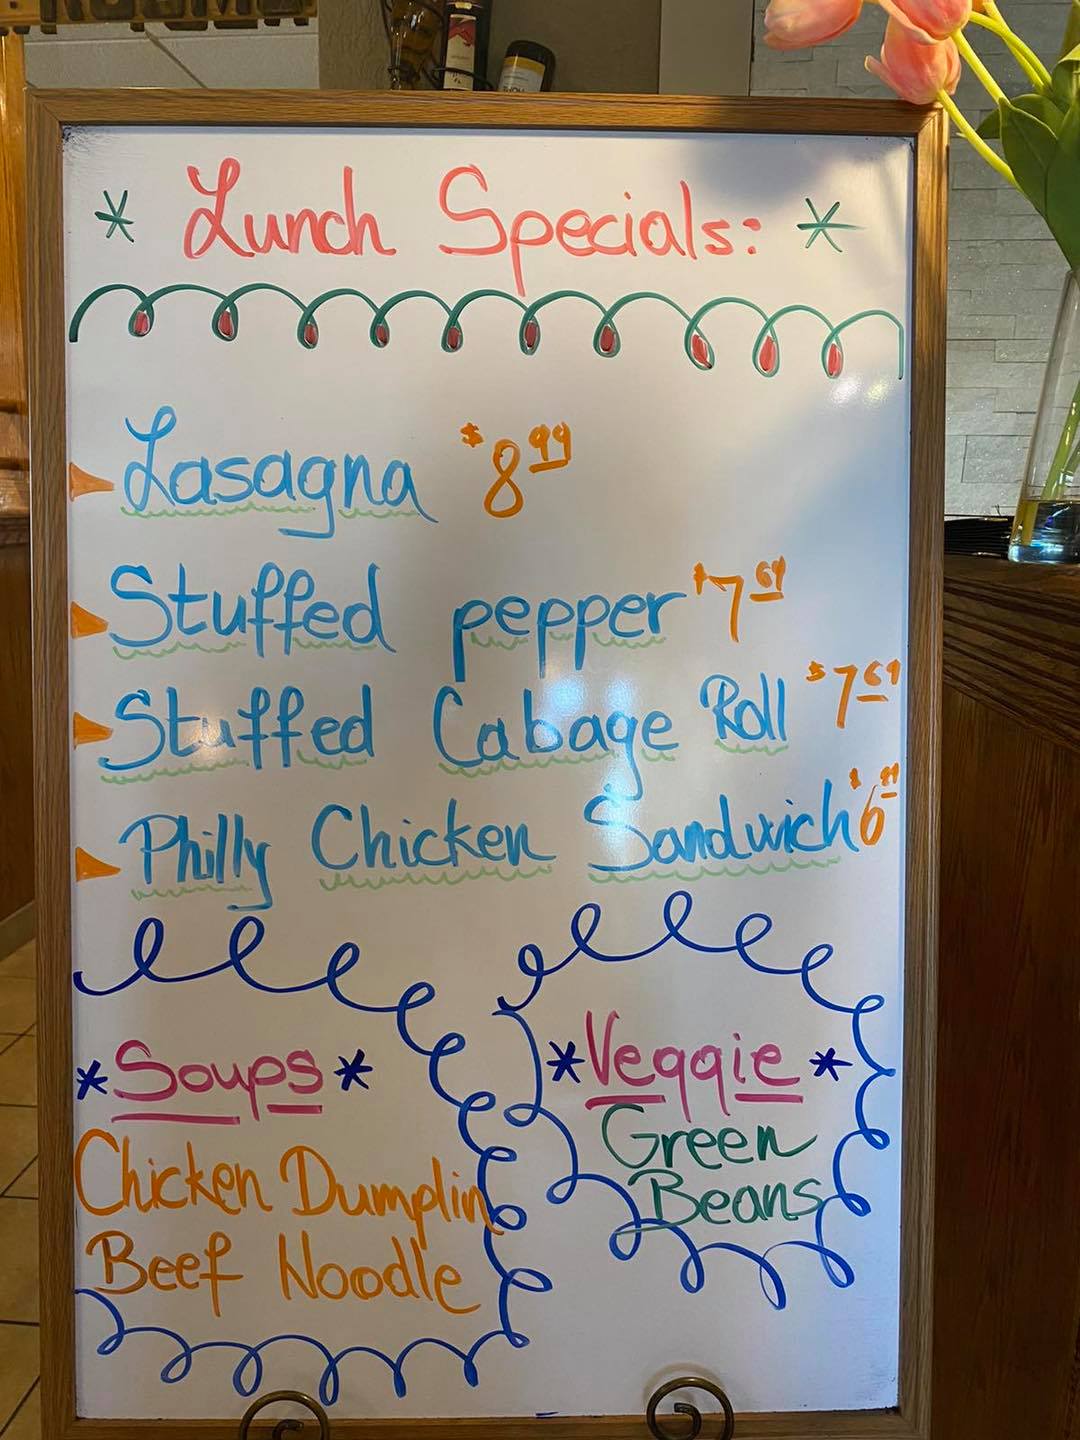 * Lunch Specials: *
Lasagna $8 99
Stuffed pepper $7 69
Stuffed Cabage Roll $7 69
Philly Chicken Sandwich $6 99
*Soups*
Chicken Dumplin
Beef Noodle
*Veggie*
Green
Beans